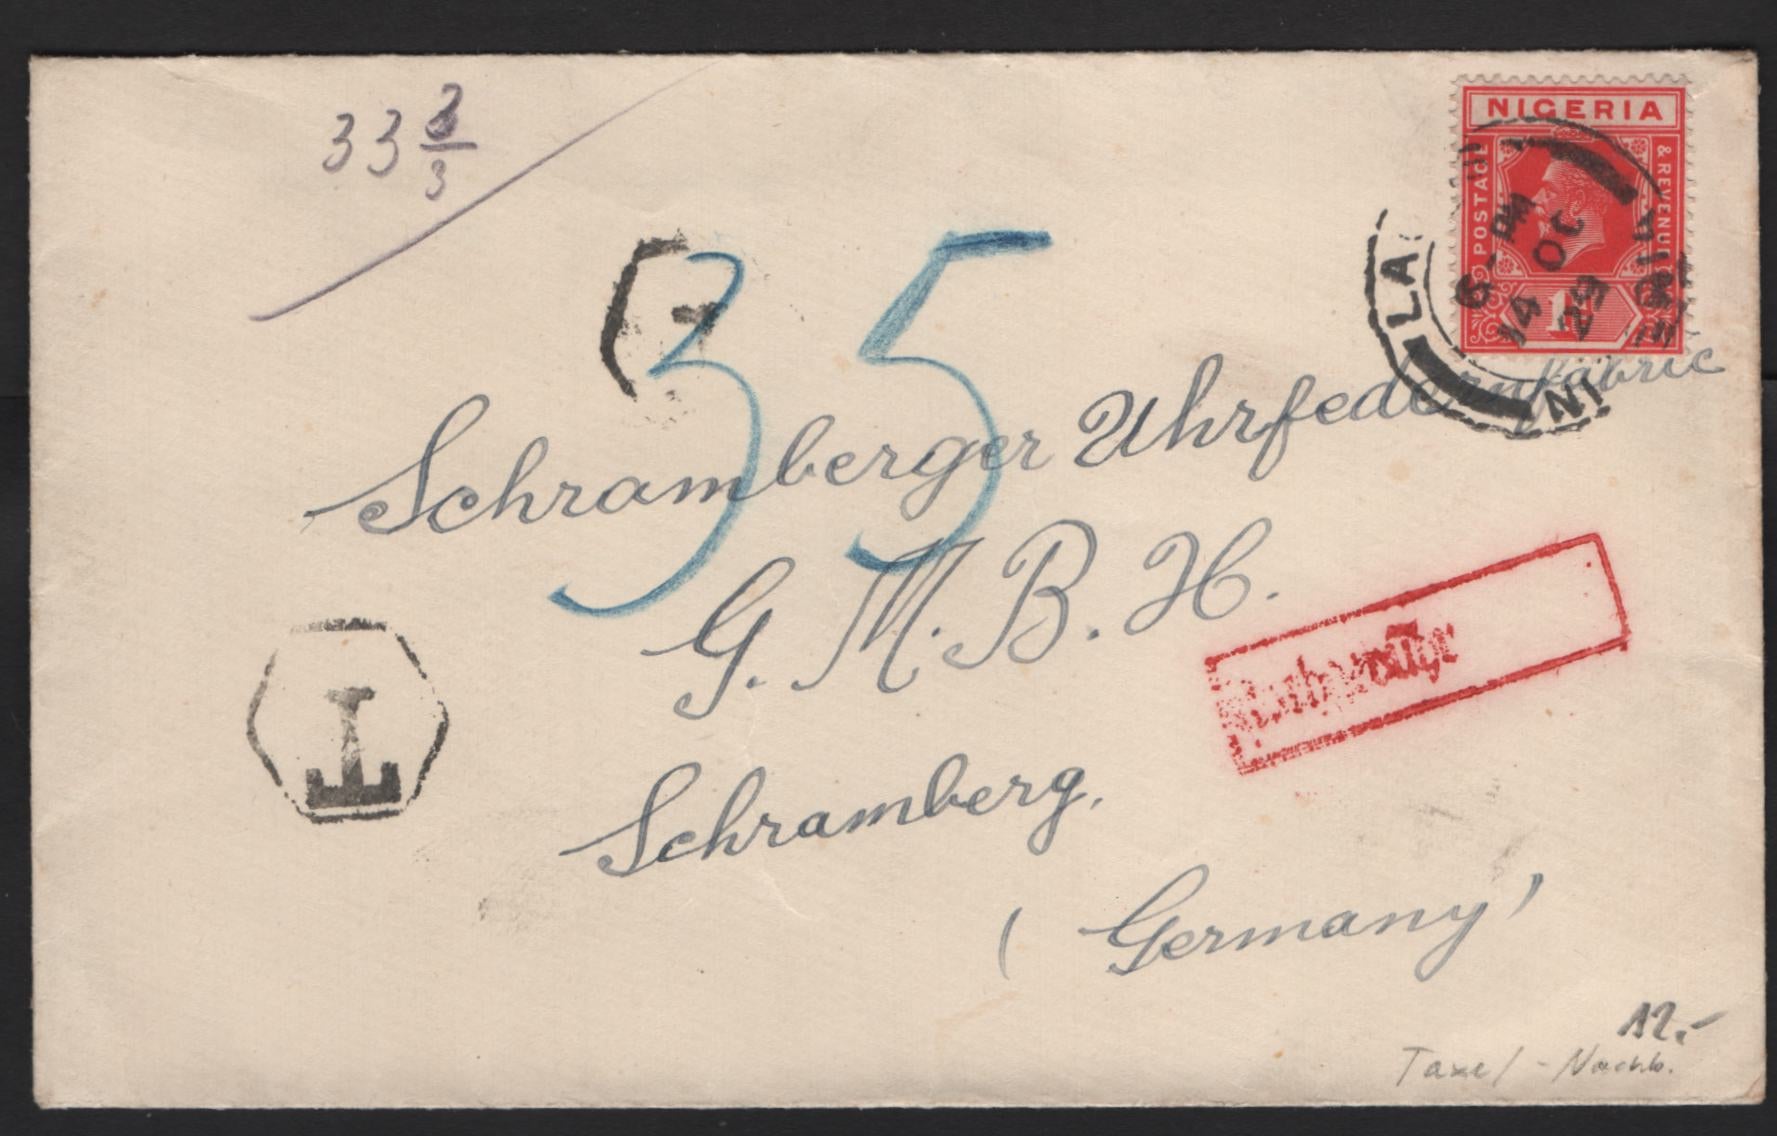 33 3/3
NIGERIA
POSTAGE & REVENUE
LA
6-PM
14 OC
29
NI
T
35
Schramberger Uhrfedernfabric
G. M. B. H.
Schramberg.
T
(Germany)
12.-
Taxe/-Nachb.